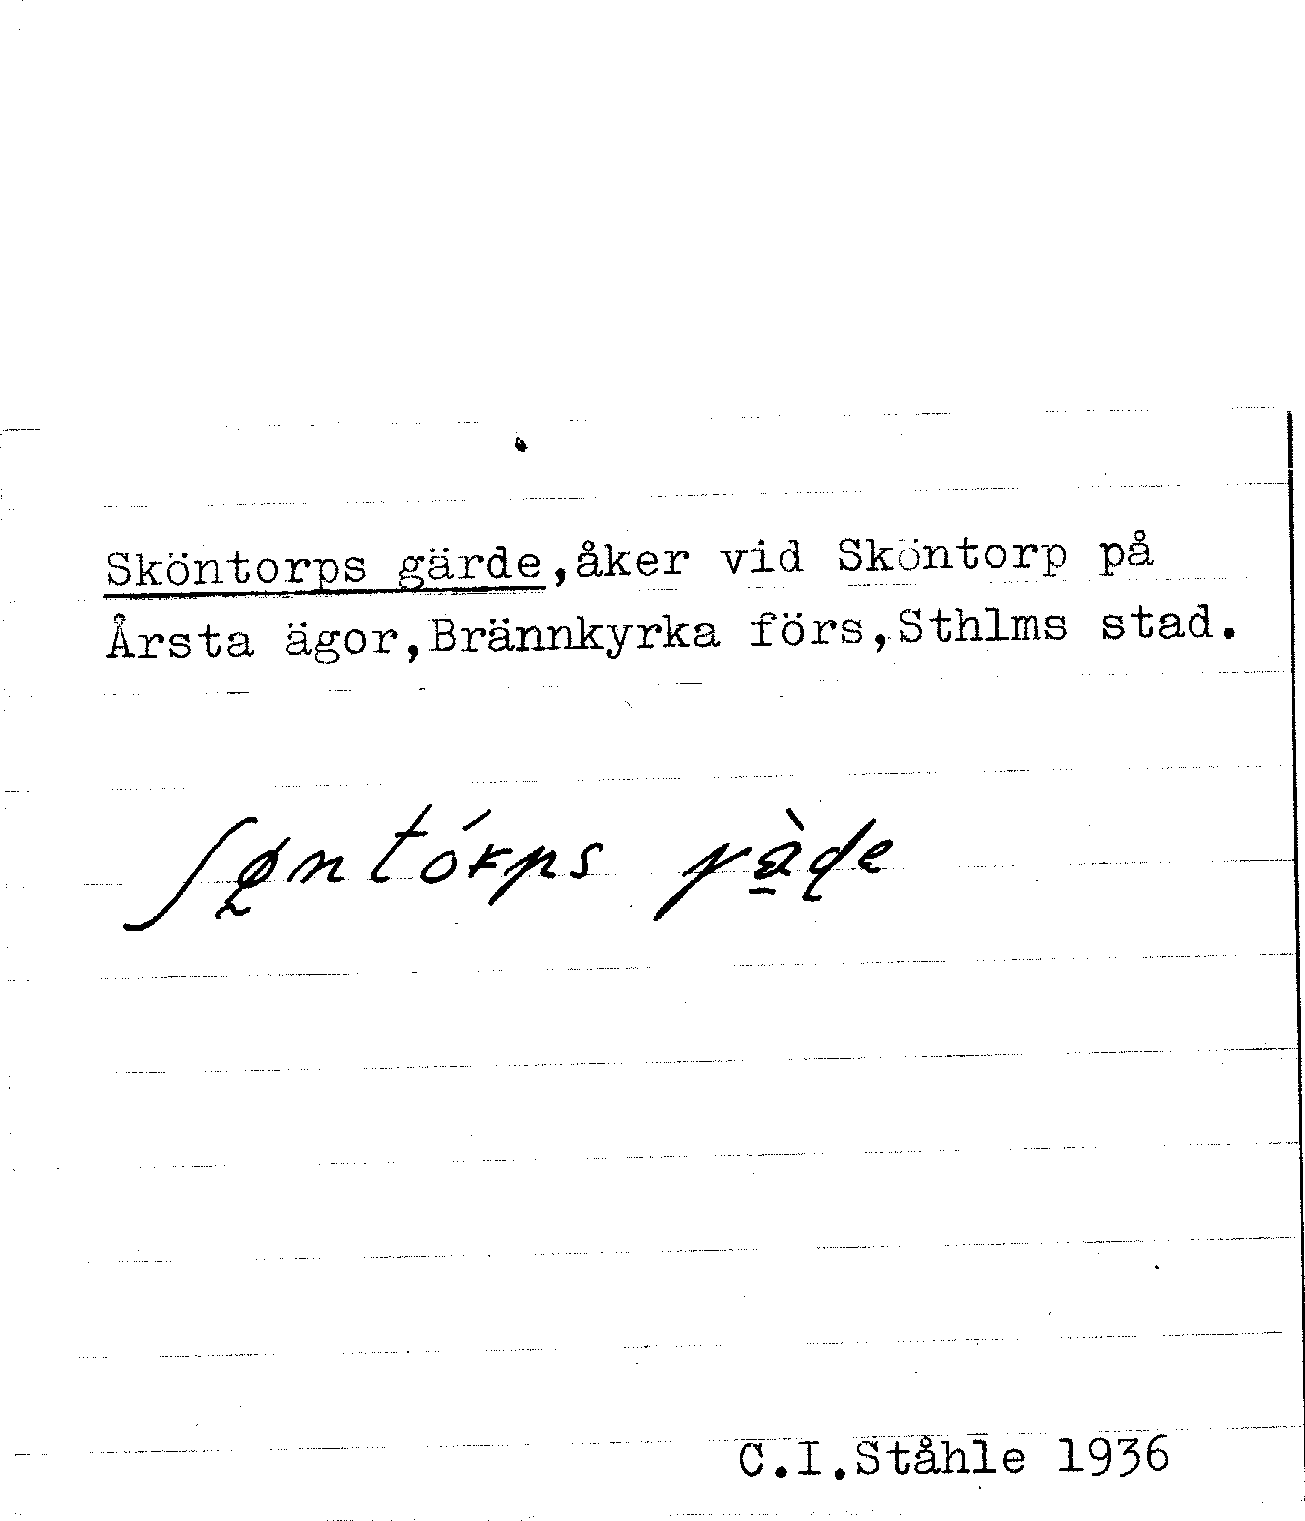 Sköntorps gärde,åker vid Sköntorp på
Årsta ägor,Brännkyrka förs,Sthlms stad.
C.I.Ståhle 1936